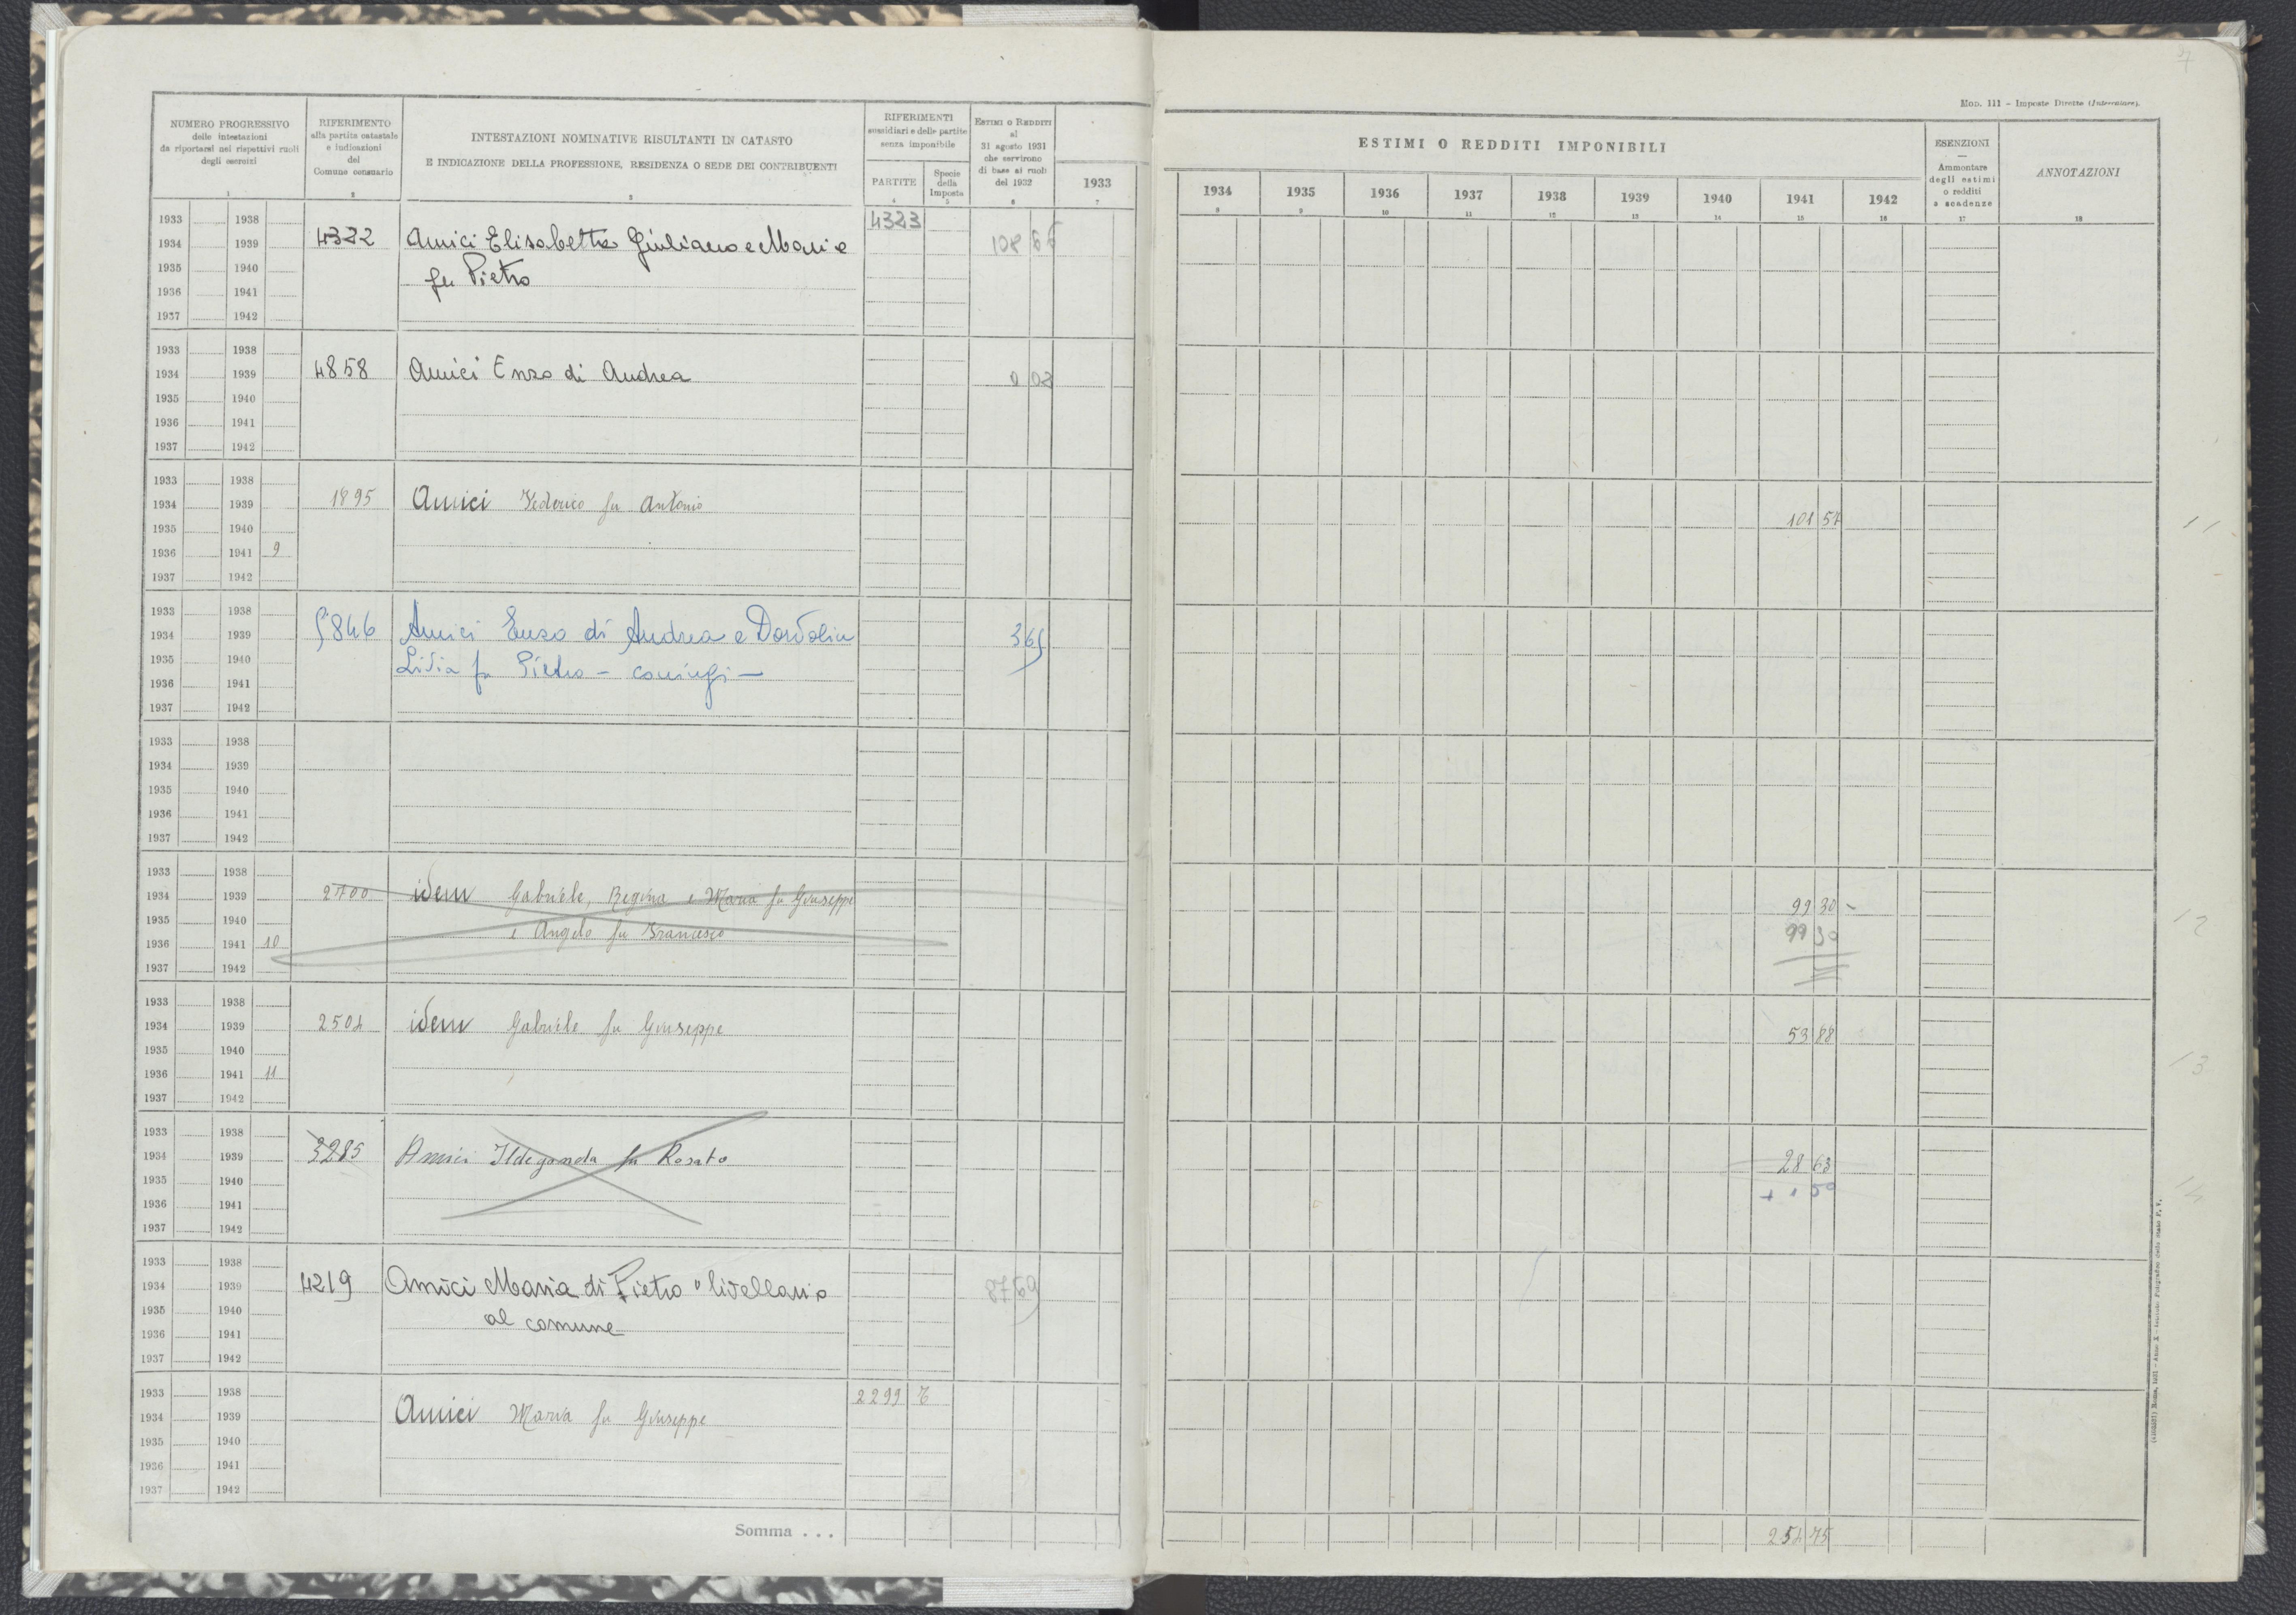 7
Mod. 111 – Imposte Dirette (Intercalare).
NUMERO PROGRESSIVO
delle intestazioni
da riportarsi nei rispettivi ruoli
degli esercizi
1
RIFERIMENTO
alla partita catastale
e indicazioni
del
Comune censuario
2
INTESTAZIONI NOMINATIVE RISULTANTI IN CATASTO
E INDICAZIONE DELLA PROFESSIONE, RESIDENZA O SEDE DEI CONTRIBUENTI
3
RIFERIMENTI
sussidiari e delle partite
senza imponibile
PARTITE
4
Specie
della
Imposta
5
ESTIMI O REDDITI
al
31 agosto 1931
che servirono
di base ai ruoli
del 1932
6
1933
7
ESTIMI O REDDITI IMPONIBILI
1934 1935 1936 1937 1938 1939 1940 1941 1942
8 9 10 11 12 13 14 15 16
ESENZIONI
—
Ammontare
degli estimi
o redditi
a scadenze
17
ANNOTAZIONI
18
1933 1938 4323
1934 1939 4322 Amici Elisabetta Giuliano e Maria 108 66
1935 1940 fu Pietro
1936 1941
1937 1942
1933 1938
1934 1939 4858 Amici Enzo di Andrea 0 02
1935 1940
1936 1941
1937 1942
1933 1938
1934 1939 1895 Amici Federico fu Antonio 101 57
1935 1940 11
1936 1941 9
1937 1942
1933 1938
1934 1939 5846 Amici Enzo di Andrea e 365
1935 1940 Lidia fu Pietro – coniugi –
1936 1941
1937 1942
1933 1938
1934 1939
1935 1940
1936 1941
1937 1942
1933 1938
1934 1939 2700 idem Gabriele, Regina e Maria fu Giuseppe 99 30 –
1935 1940 e Angelo fu Francesco 99 30 12
1936 1941 10
1937 1942
1933 1938
1934 1939 2504 idem Gabriele fu Giuseppe 53 88
1935 1940
1936 1941 11 13
1937 1942
1933 1938
1934 1939 3285 Amici Ildegonda fu Rosato 28 63
1935 1940 + 1 50 14
1936 1941
1937 1942
1933 1938
1934 1939 4219 Amici Maria di Pietro livellaria 87 69
1935 1940 al comune
1936 1941
1937 1942
1933 1938 2299 T
1934 1939 Amici Maria fu Giuseppe
1935 1940
1936 1941
1937 1942
Somma . . . 254 75